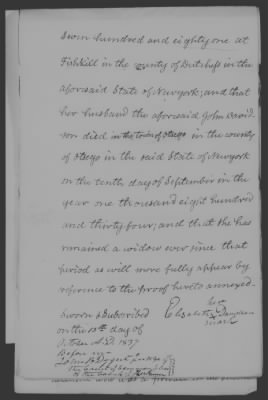 seven hundred and eighty one at
Fishkill in the county of Dutchess in the
aforesaid State of Newyork; and that
her husband the aforesaid John David
son died in the town of Otsego in the county
of Otsego in the said State of Newyork
on the tenth day of September in the
year one thousand eight hundred
and thirty four; and that she has
remained a widow ever since that
period as will more fully appear by
reference to the proof hereto annexed.
Sworn & Subscribed
her
Elizabeth Davidson
mark
on the 13th day of
October A.D. 1837
Before me